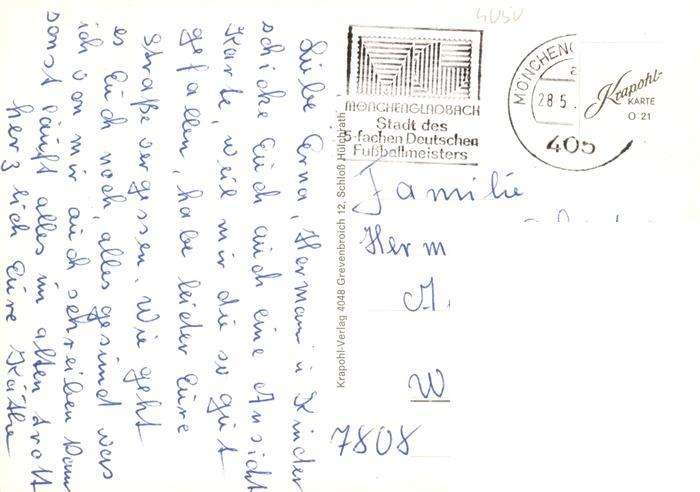 Liebe Erna, Hermann u Kinder
schicke Euch auch eine Ansicht
Karte, weil mir die so gut
gefallen, habe leider Eure
Straße vergessen. Wie geht
es Euch noch, alles gesund was
ich von mir auch schreiben kann
sonst läuft alles im alten trott
herzlich Eure Käthe
4050
MÖNCHENGLADBACH
Stadt des
5-fachen Deutschen
Fußballmeisters
MÖNCHENG
28.5.
405
Krapohl-
KARTE
O 21
Krapohl-Verlag 4048 Grevenbroich 12, Schloß Hülchrath
Familie
Herm
W
7808